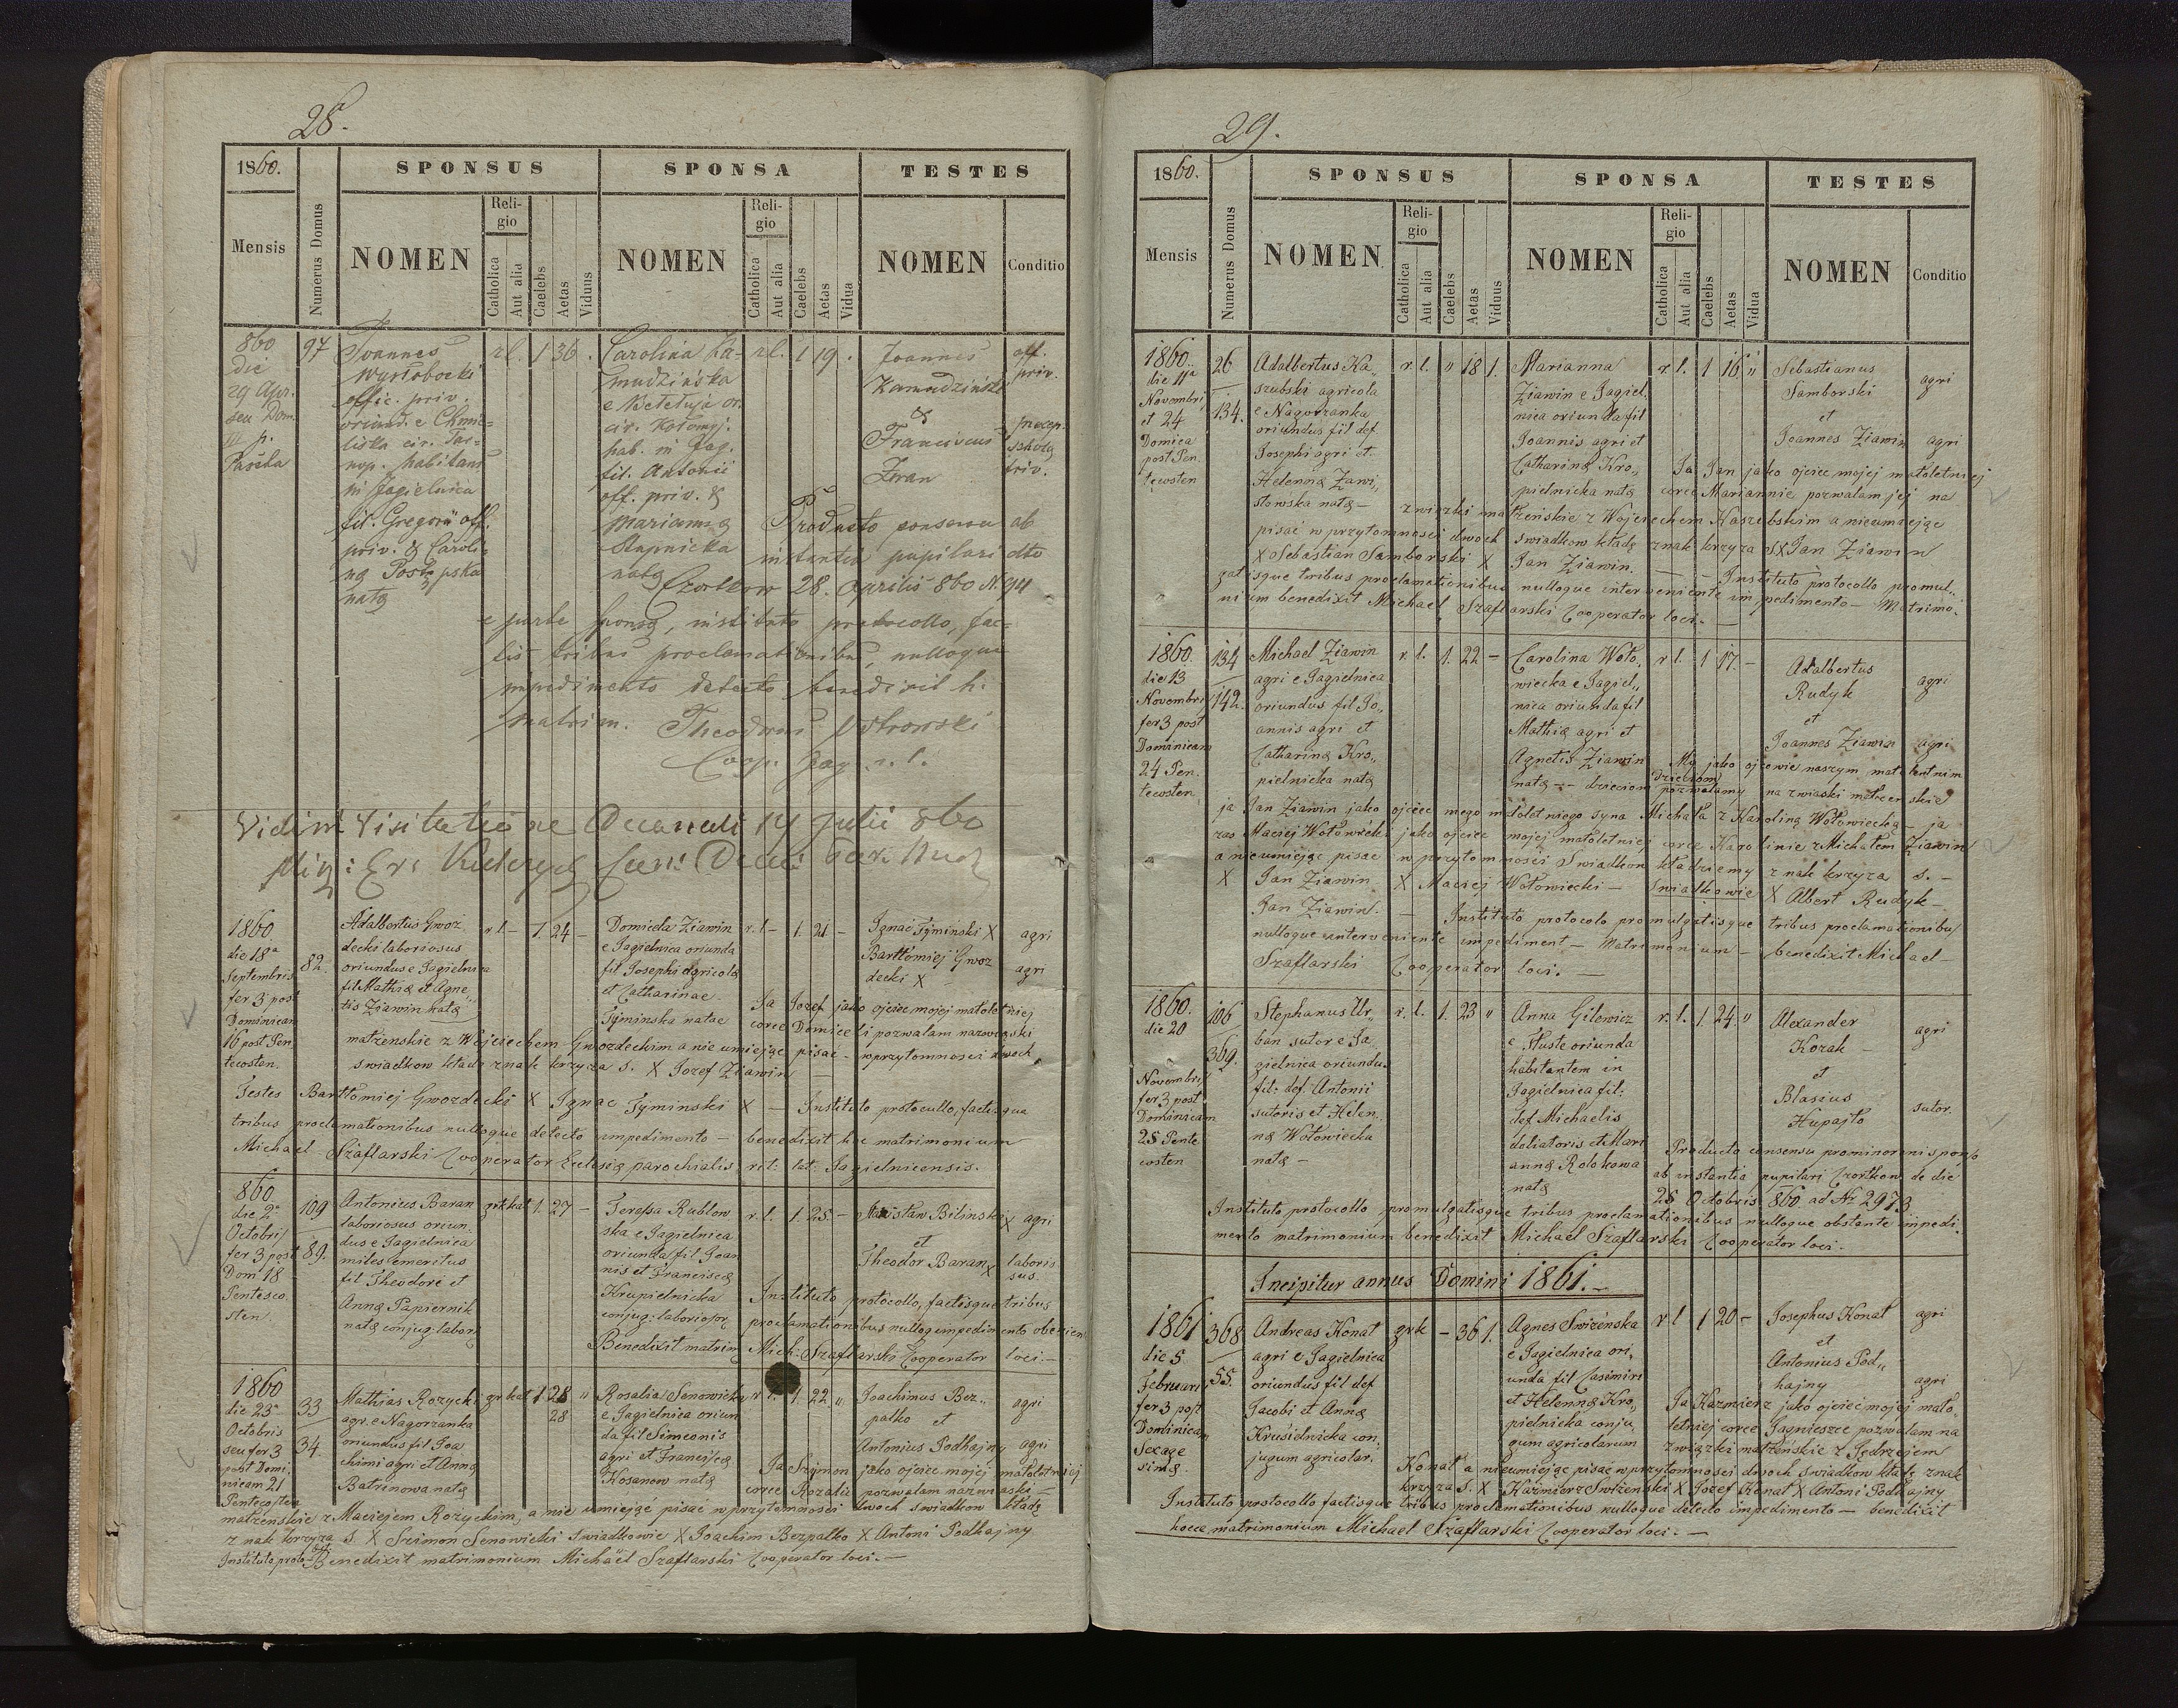 28.
1860.
SPONSUS
SPONSA
TESTES
Mensis
Numerus Domus
NOMEN
Religio
Catholica
Aut alia
Caelebs
Aetas
Viduus
NOMEN
Religio
Catholica
Aut alia
Caelebs
Aetas
Vidua
NOMEN
Conditio
860
die
29 Apr.
seu Dom.
III p.
Pascha
97
Joannes
Wysłobocki
offic. priv.
oriund. e Chmie-
liska cir. Tar-
nop. habitans
in Jagielnica
fil. Gregorii off.
priv. & Caroli-
nę Postępska
natę
r l. 1 36 .
Carolina Ka-
mudzińska
e Keletuja or.
cir. Kołomyj.
hab. in Jag.
fil. Antonii
off. priv. &
Mariannę
Stapnicka
natę
rl. 1 19 .
Joannes
Kamudziński
&
Franciscus
Zoran
off.
priv.
precep.
scholę
triv.
Producto consensu ab
instantia pupilari dtto
Czortkow 28. Aprilis 860 N. 941
e parte sponsę, instituto protocollo, fac-
tis tribus proclamationibus, nulloque
impedimento detecto benedixit h.
matrim. Theodorus Ostrowski
Coop. Jag. r. l.
Vidi in Visitatione Decanali 14 Julii 860
1860
die 18a
Septembris
fer 3 post
Dominicam
16 post Pen
tecosten.
82.
Adalbertus Gwoz
decki laboriosus
oriundus e Jagielnica
fil Mathię et Agne
tis Ziawin natę
r l - 1. 24 -
Domicela Ziawin
e Jagielnica oriunda
fil Josephi agricolę
et Catharinae
Tyminska natae
r. l - 1. 21 -
Ignac Tyminski X
Bartłomiej Gwoz
decki X
agri
agri
Ja Jozef jako ojciec mojej małoletniej
corce Domiceli pozwalam na związki
matżenskie z Wojciechem Gwozdeckim a nie umiejąc pisać - w przytomnosci dwoch
swiadkow kładę znak krzyza s. X Jozef Ziawin
Testes Bartłomiej Gwozdecki X Ignac Tyminski X - Instituto protocollo, factisque
tribus proclamationibus nulloque detecto impedimento - benedixit hoc matrimonium
Michael Szaflarski Cooperator Eclesię parochialis rit: lat: Jagielnicensis.
860
die 2a
Octobris
fer 3 post
Dom 18
Pentesco
sten.
109
89.
Antonius Baran
laboriosus oriun
dus e Jagielnica
miles emeritus
fil Theodori et
Annę Papiernik
natę conjug: labor:
grkkat 1. 27 -
Teressa Rublow
ska e Jagielnica
oriunda fil Joan
nis et Franciscę
Krupielnicka
conjug: laboriosor
r. l. 1. 25. -
Stanisław Bilinski X
et
Theodor Baran X
agri
laborio
sus.
Instituto protocollo, factisque tribus
proclamationibus nulloq impedimento obvenien
Benedixit matrim Mich: Szaflarski Cooperator loci. -
1860
die 23a
Octobris
seu fer 3
post Domi
nicam 21
Pentecosten
33
34
Mathias Rozycki
agr. e Nagorzanka
oriundus fil Joa
chimi agri et Annę
Batrinowa natę
gr kat 1 28 "
28
Rosalia Senowicka
e Jagielnica oriun
da fil Simeonis
agri et Franciscę
Kosanow natę
r l. 1. 22 "
Joachimus Bez„
palko et
Antonius Podhajny
agri
agri
Ja Szymon jako ojciec mojej małoletniej
corce Rozalii pozwalam na związki -
matżenskie z Maciejem Rozyckim, a nie umiejąć pisać w przytomnosci dwoch swiadkow kładę
znak krzyza s. X Szimon Senowicki swiadkowie X Joachim Bezpalko X Antoni Podhajny
Instituto proto Benedixit matrimonium Michaël Szaflarski Cooperator loci. -
29.
1860.
SPONSUS
SPONSA
TESTES
Mensis
Numerus Domus
NOMEN
Religio
Catholica
Aut alia
Caelebs
Aetas
Viduus
NOMEN
Religio
Catholica
Aut alia
Caelebs
Aetas
Vidua
NOMEN
Conditio
1860.
die 11a
Novembri
et 24
Domica
post Pen
tecosten
26
134.
Adalbertus Ka„
szubski agricola
e Nagorzanka
oriundus fil def
Josephi agri et
Helenę Zawi„
stowska natę -
r. l. " 18 1.
Marianna
Ziawin e Jagiel„
nica oriunda fil
Joannis agri et
Catharinę Kro„
pielnicka natę
r. l. 1 16 "
Sebastianus
Samborski
et
Joannes Ziawin
agri
agri
Ja Jan jako ojciec mojej małoletniej
corce Mariannie pozwalam jej na
zwiazki matżeńskie z Wojciechem Kaszubskim a nieumiejąc
pisać w przytomnosci dwoch swiadkow kładę znak krzyza s X Jan Ziawin
X Sebastian Samborski X Jan Ziawin. - Instituto protocollo promul„
gatisque tribus proclamationibus nulloque interveniente impedimento - Matrimo„
nium benedixit Michael Szaflarski Cooperator loci. -
1860.
die 13
Novembri
fer 3 post
Dominicam
24 Pen
tecosten
134
142.
Michael Ziawin
agri e Jagielnica
oriundus fil Jo„
annis agri et
Catharinę Kro„
pielnicka natę
r. l. 1. 22 -
Carolina Woło„
wiecka e Jagiel„
nica oriunda fil
Mathię agri et
Agnetis Ziawin
natę -
r l. 1 17. -
Adalbertus
Rudyk
et
Joannes Ziawin
agri
agri
My jako ojcowie naszym małoletnim
dzieciom pozwalamy na związki matżenskie
ja Jan Ziawin jako ojciec mego małoletniego syna Michała z Karoliną Wołowiecką - ja
zas Maciej Wołowiecki jako ojciec mojej małoletniej corce Karolinie z Michałem Ziawin
a nieumiejąc pisac w przytomnosci Swiadkow kładziemy znak krzyza s. -
X Jan Ziawin X Maciej Wołowiecki - Swiadkowie X Albert Rudyk -
Jan Ziawin. - Instituto protocolo promulgatisque tribus proclamationibus
nulloque interveniente impediment - Matrimonium - benedixit Michael -
Szaflarski Cooperator loci. -
1860.
die 20
Novembris
fer 3 post
Dominicam
25 Pente
costen
106
369.
Stephanus Ur„
ban sutor e Ja„
gielnica oriundu
fil: def Antonii
sutoris et Helen„
nę Wołowiecka
natę -
r. l. 1. 23 "
Anna Gilewicz
e Tłuste oriunda
habitantem in
Jagielnica fil:
def Michaelis
doliatoris et Mari
annę Rolokowa
natę
r. l. 1. 24. "
Alexander
Kozak -
et
Blasius
Hupajło
agri
sutor.
Producto consensu pro minorenni sponso
ab instantia pupilari Czortkow de die
25 Octobris 860 ad Nr 2973
Instituto protocollo promulgatisque tribus proclamationibus nulloque obstante impedi„
mento matrimonium benedixit Michael Szaflarski Cooperator loci -
Incipitur annus Domini 1861. -
1861
die 5
Februarii
fer 3 post
Dominicam
Sexage
simę.
368
55.
Andreas Konat
agri e Jagielnica
oriundus fil def
Jacobi et Annę
Krusielnicka con„
jugum agricolar.
grk - 36 1.
Agnes Swizénska
e Jagielnica ori„
unda fil Casimiri
et Helennę Kro„
pielnicka conju„
gum agricolarum
r l 1 20 -
Josephus Konat
et
Antonius Pod„
hajny
agri
agri
Ja Kazmierz jako ojciec mojej mało„
letniej corce Jagnieszce pozwalam na
związki matżenskie z Jędrzejem
Konat a nieumiejąc pisać w przytomnosci dwoch swiadkow kładę znak
krzyza s. X Kazmierz Swizenski X Jozef Konat X Antoni Podhajny
Instituto protocollo factisque tribus proclamationibus nulloque detecto impedimento - benedixit
hocce matrimonium Michael Szaflarski Cooperator loci. -